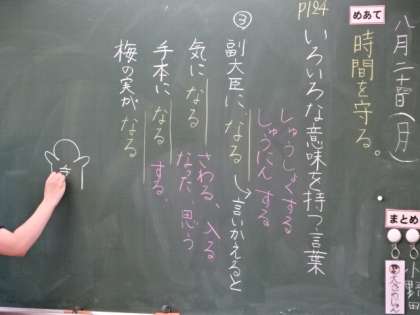 八月二十二日(月)
めあて
時間を守る。
p124
いろいろな意味を持つ言葉
しゅうしょくする
しゅうにんする
③
副大臣に なる → 言いかえると
気に なる さわる、入る
なった 思う
手本に なる する。
梅の実が なる
き
まとめ